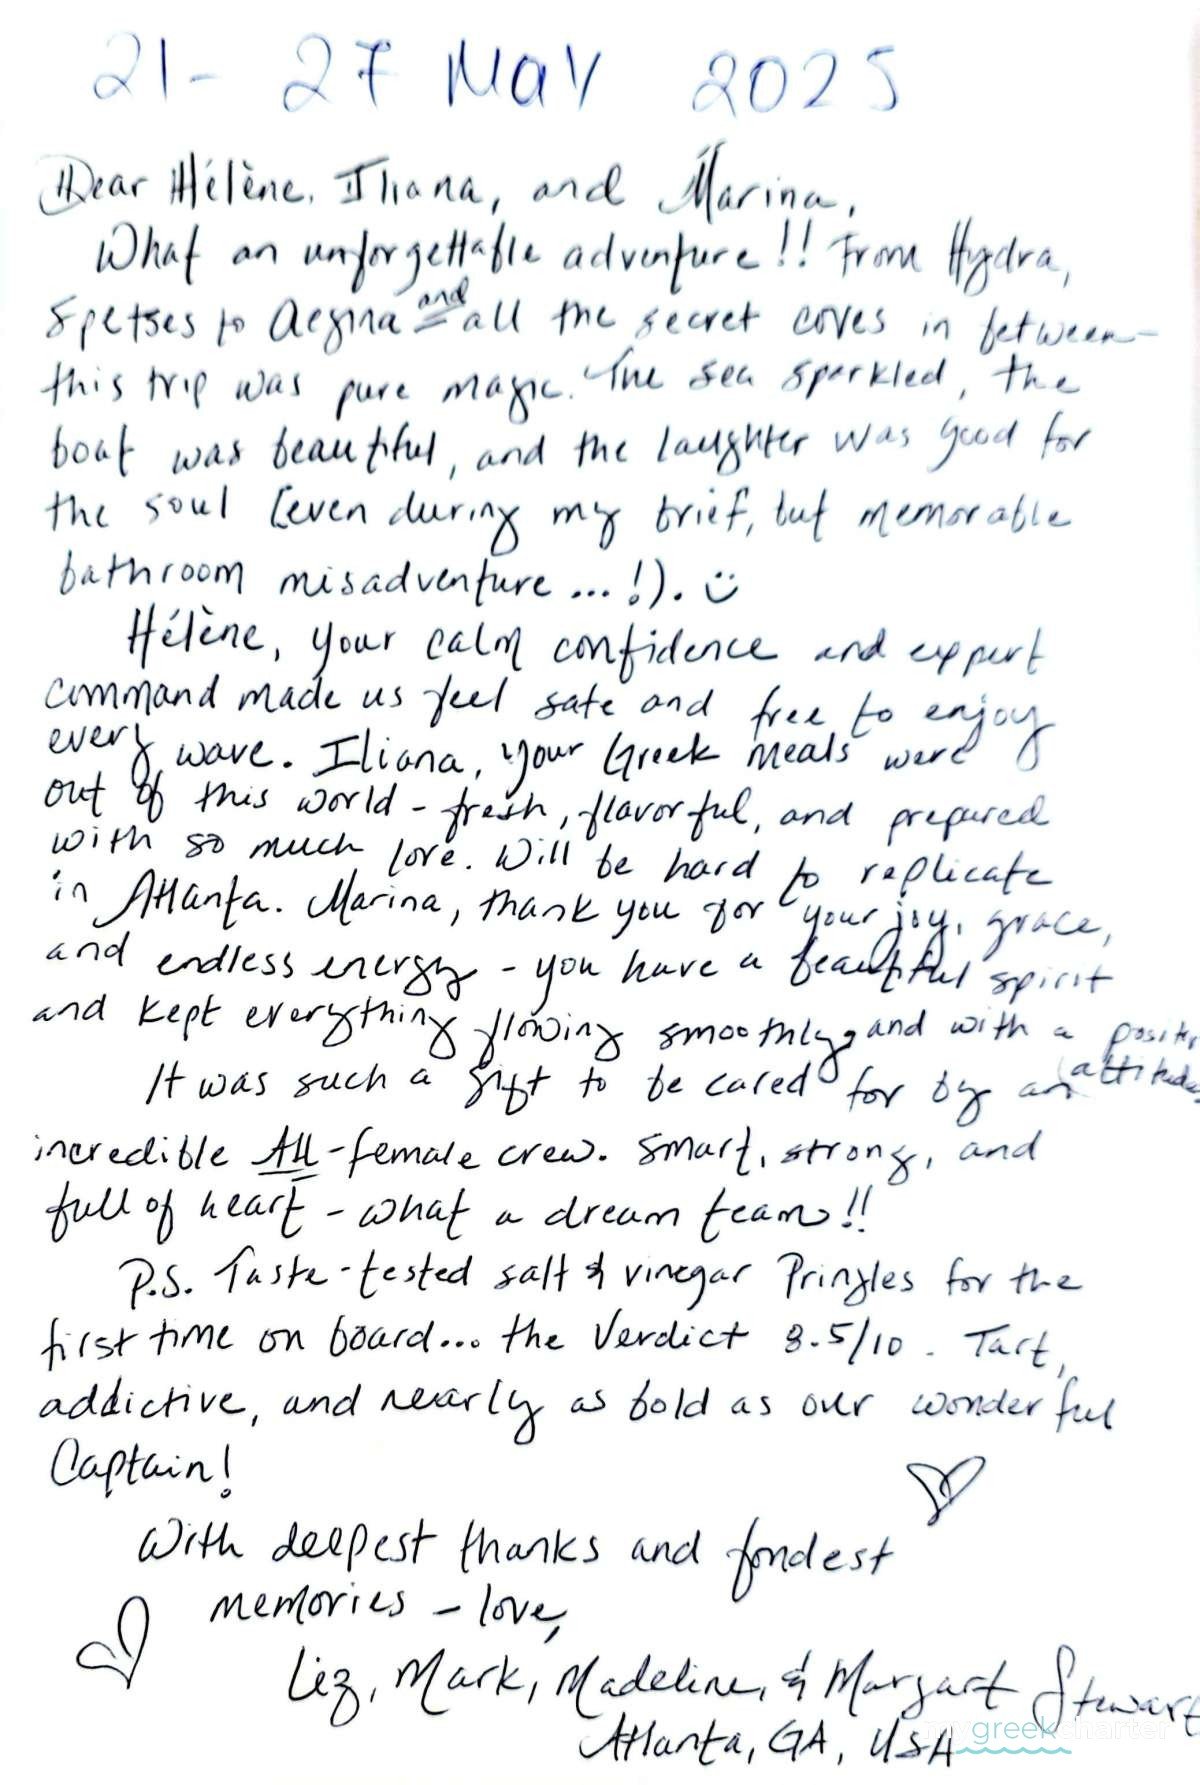 21- 27 May 2025
Dear Hélène, Iliana, and Marina,
What an unforgettable adventure!! From Hydra,
Spetses to Aegina and all the secret coves in between-
this trip was pure magic. The sea sparkled, the
boat was beautiful, and the laughter was good for
the soul (even during my brief, but memorable
bathroom misadventure...!). :)
Hélène, your calm confidence and expert
command made us feel safe and free to enjoy
every wave. Iliana, your Greek meals were
out of this world - fresh, flavorful, and prepared
with so much love. Will be hard to replicate
in Atlanta. Marina, thank you for your joy, grace,
and endless energy - you have a beautiful spirit
and kept everything flowing smoothly, and with a positive
attitude.
It was such a gift to be cared for by an
incredible All-female crew. Smart, strong, and
full of heart - what a dream team!!
P.S. Taste-tested salt & vinegar Pringles for the
first time on board... the Verdict 8.5/10. Tart,
addictive, and nearly as bold as our wonderful
Captain!
With deepest thanks and fondest
memories - love,
Liz, Mark, Madeline, & Margart Stewart
Atlanta, GA, USA
mygreekcharter